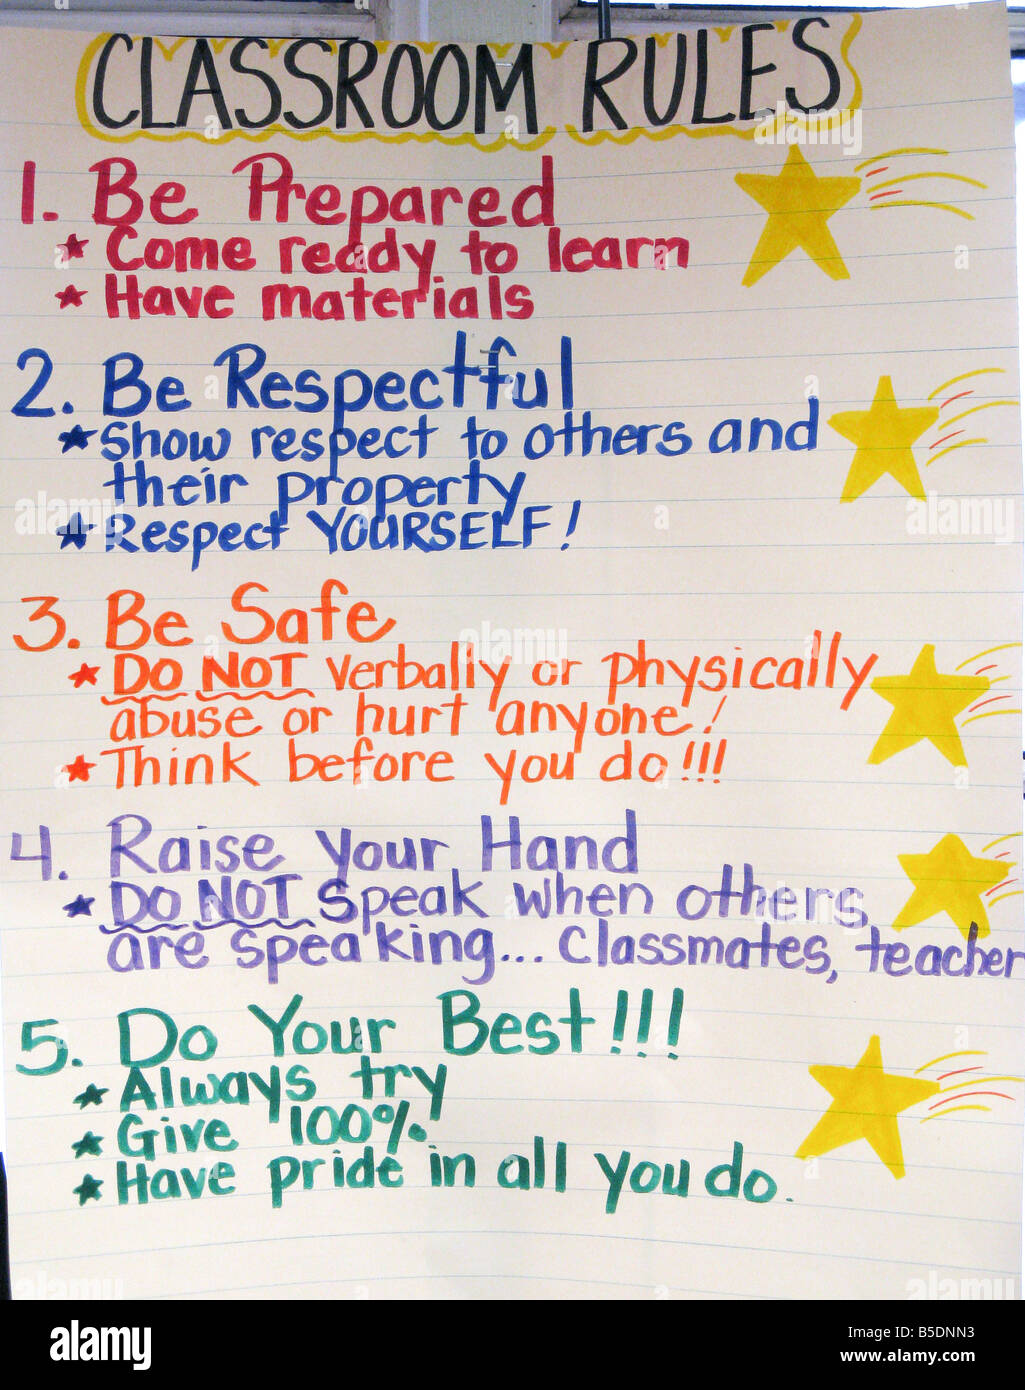 CLASSROOM RULES
1. Be Prepared
* Come ready to learn
* Have materials
2. Be Respectful
* Show respect to others and
their property
* Respect YOURSELF!
3. Be Safe
* DO NOT verbally or physically
abuse or hurt anyone!
* Think before you do!!!
4. Raise Your Hand
* DO NOT speak when others
are speaking... classmates, teacher
5. Do Your Best!!!
* Always try
* Give 100%
* Have pride in all you do.
alamy
Image ID: B5DNN3
www.alamy.com